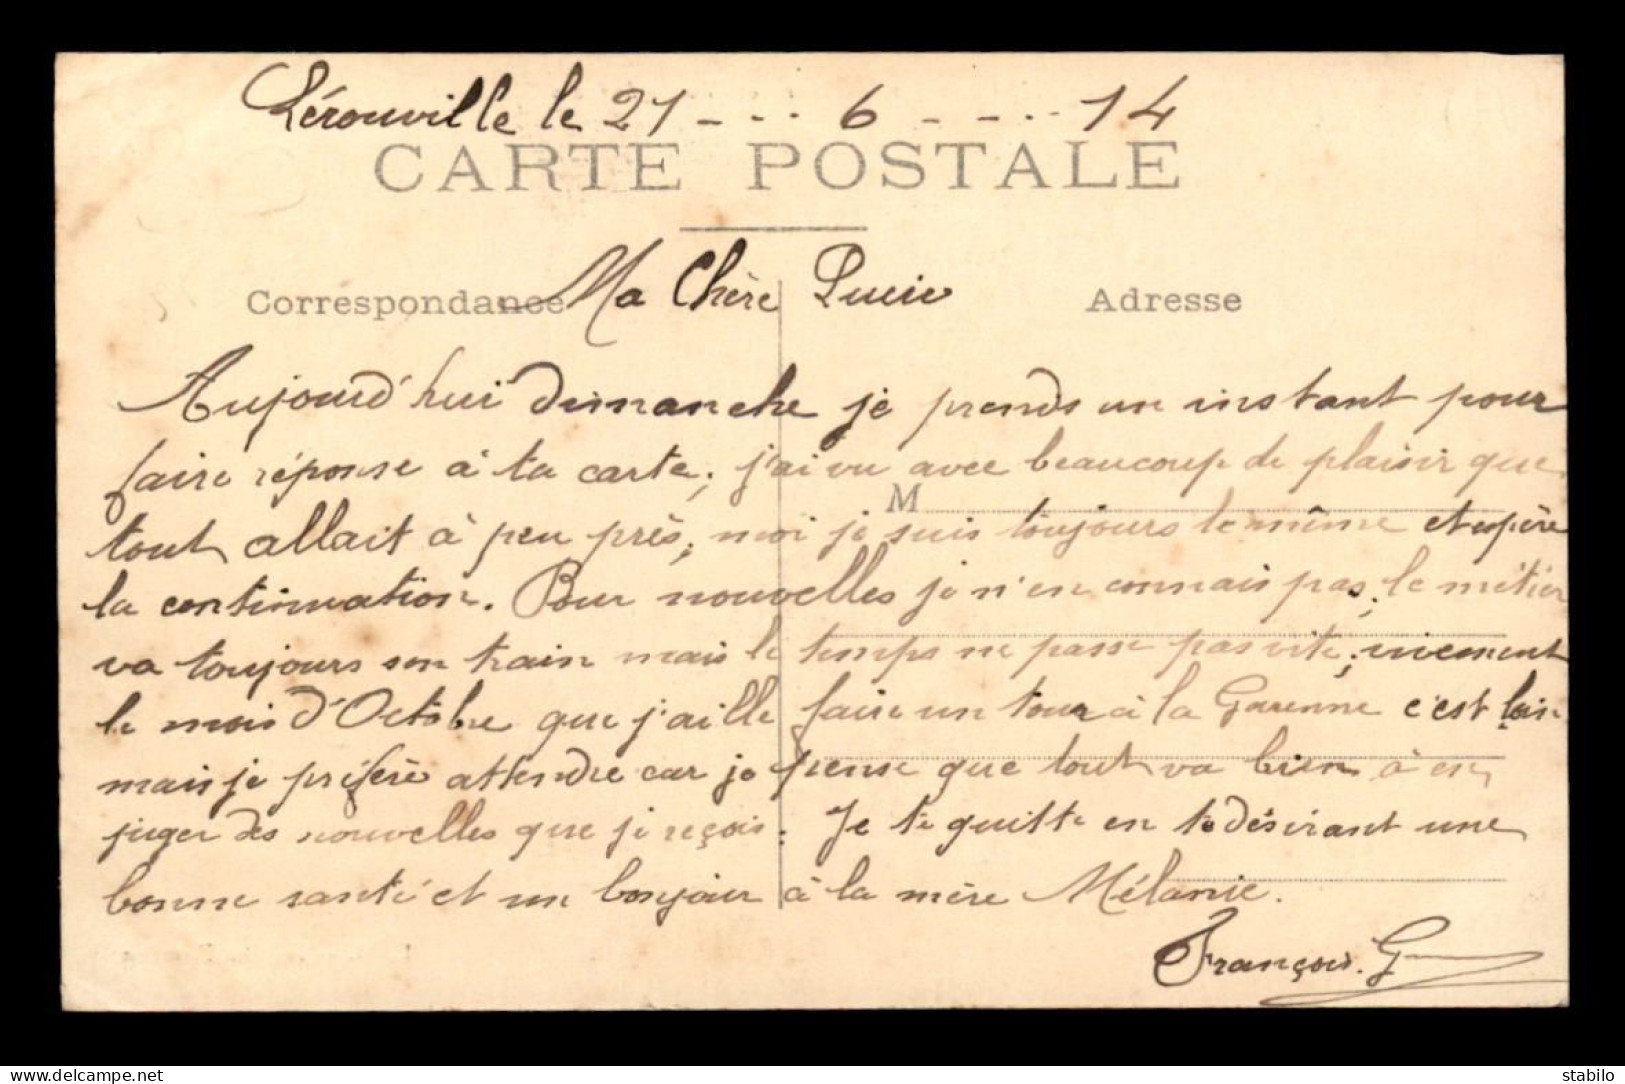 Lérouville le 21 - - - 6 - - - - 14
CARTE POSTALE
Correspondance Ma Chère Lucie Adresse
Aujourd'hui dimanche je prends un instant pour
faire réponse à ta carte; j'ai vu avec beaucoup de plaisir que
M
tout allait à peu près; moi je suis toujours le même et espère
la continuation. Pour nouvelles je n'en connais pas; le métier
va toujours son train mais le temps ne passe pas vite; viement
le mois d'Octobre que j'aille faire un tour à la Garenne c'est loin
mais je préfère attendre car je pense que tout va bien à en
juger des nouvelles que je reçois. Je te quitte en te désirant une
bonne santé et un bonjour à la mère Mélanie.
François. G
stabilo